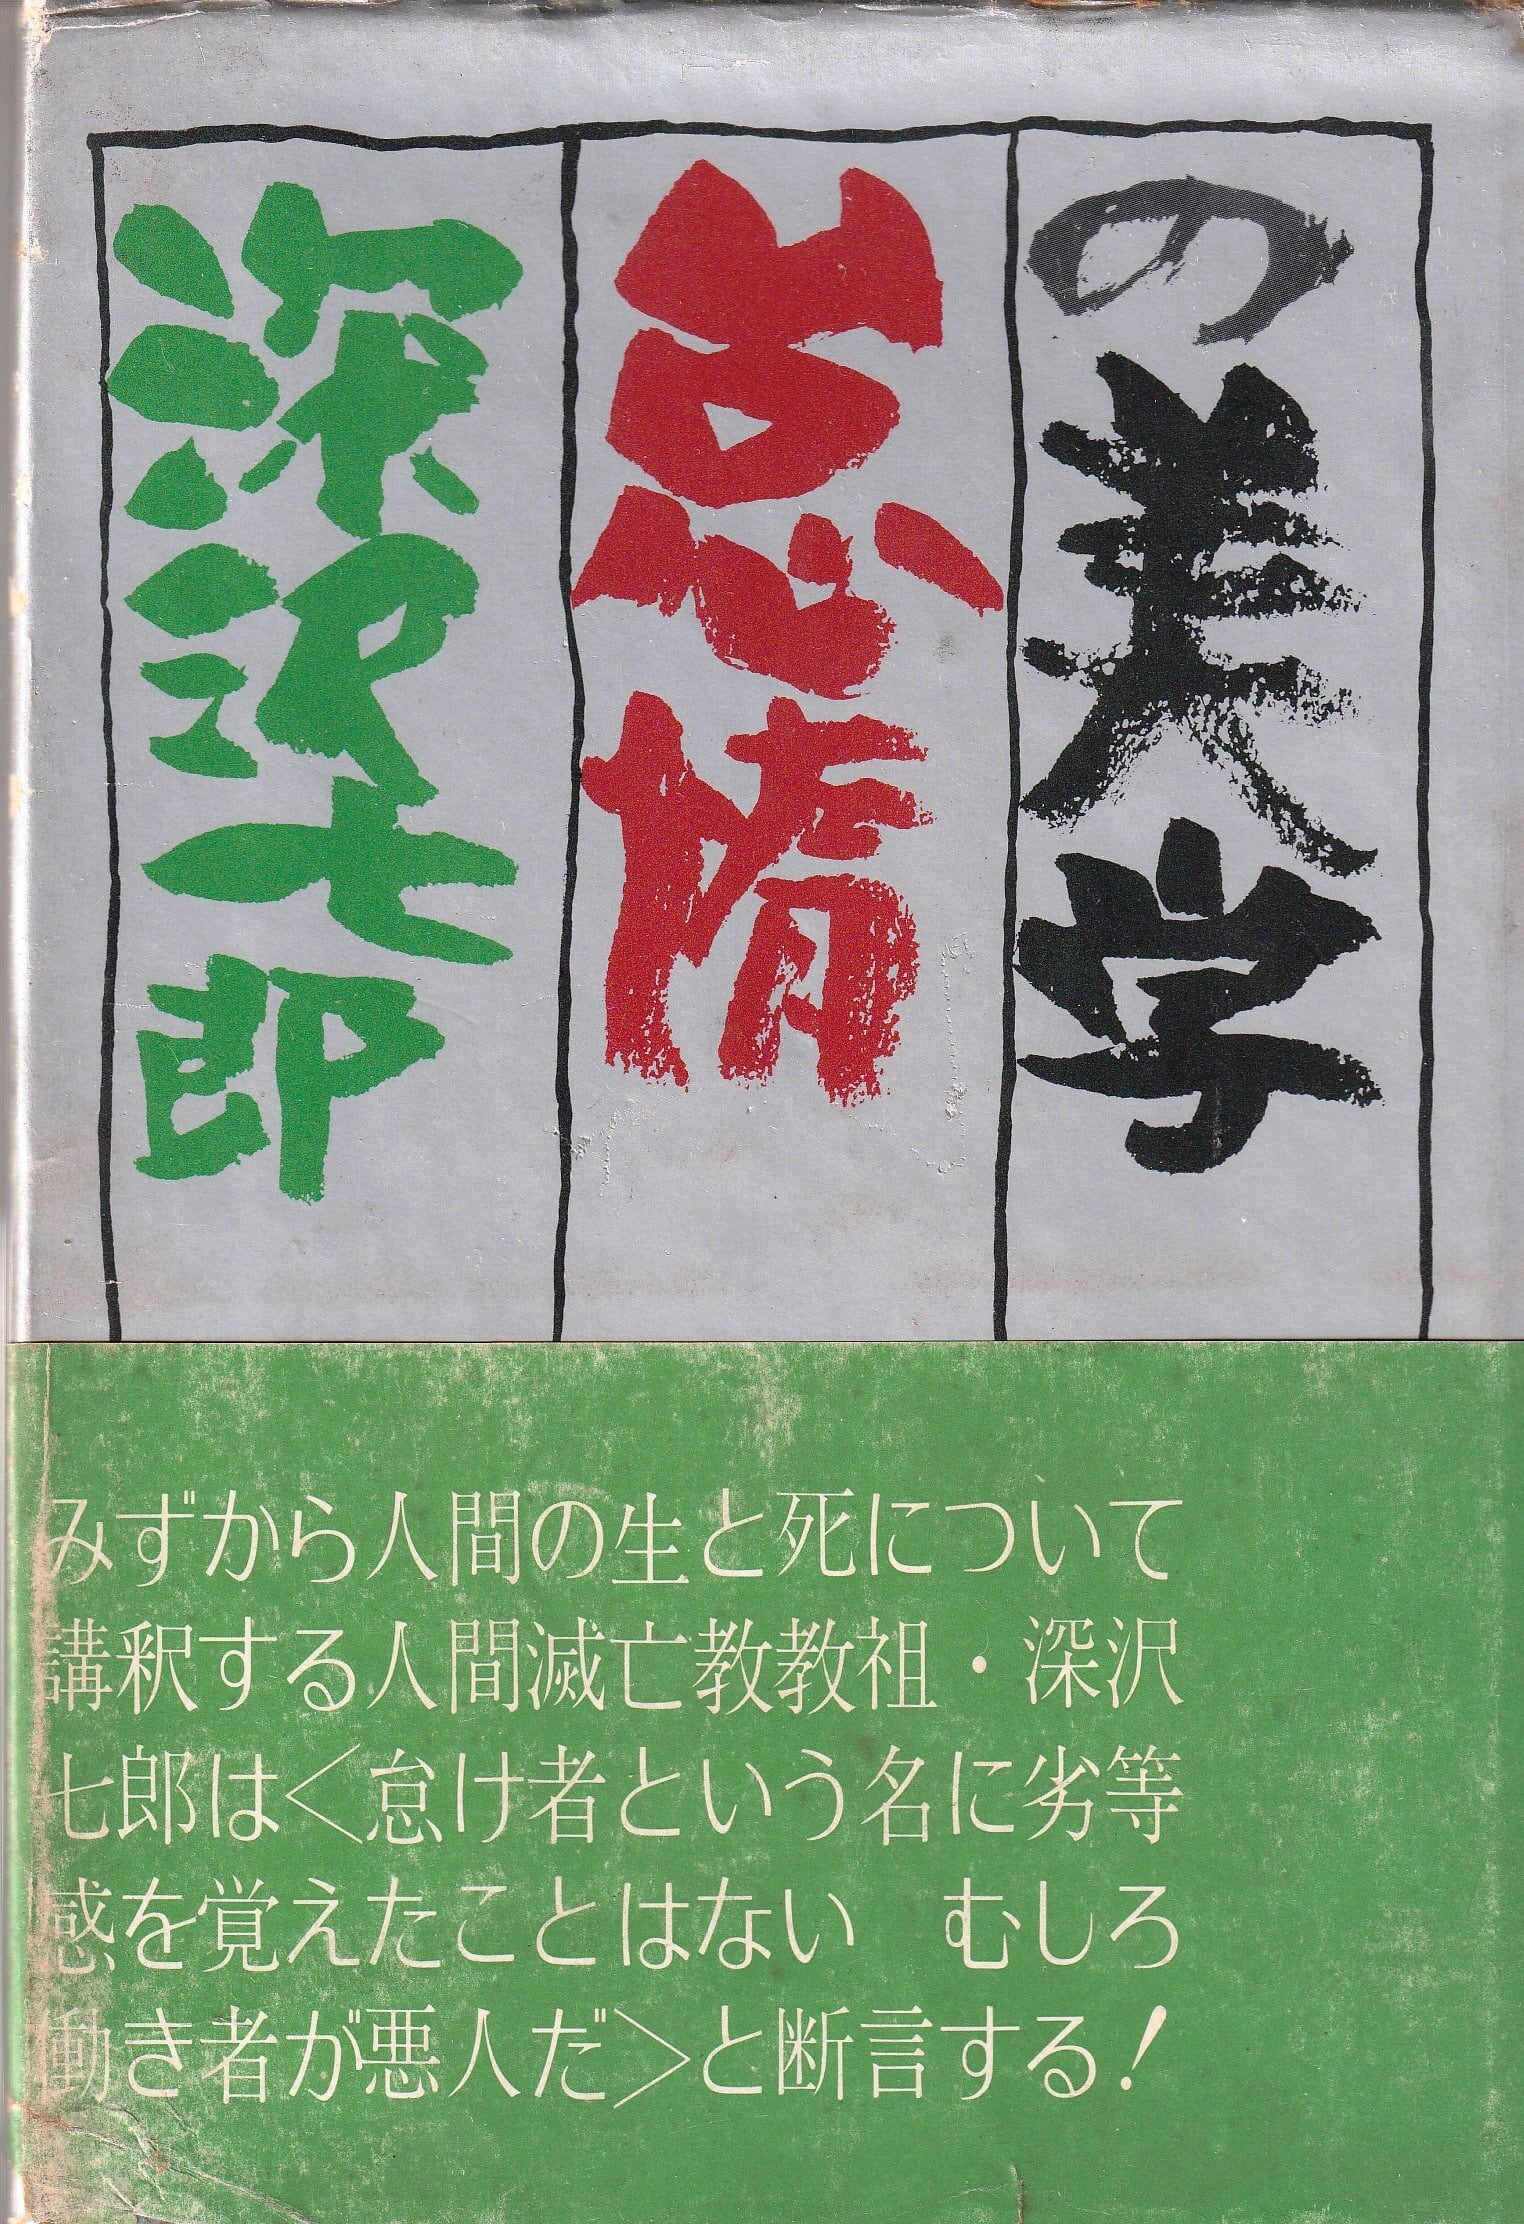 深沢七郎
怠惰
の美学
みずから人間の生と死について
講釈する人間滅亡教教祖・深沢
七郎は＜怠け者という名に劣等
感を覚えたことはない　むしろ
働き者が悪人だ＞と断言する！